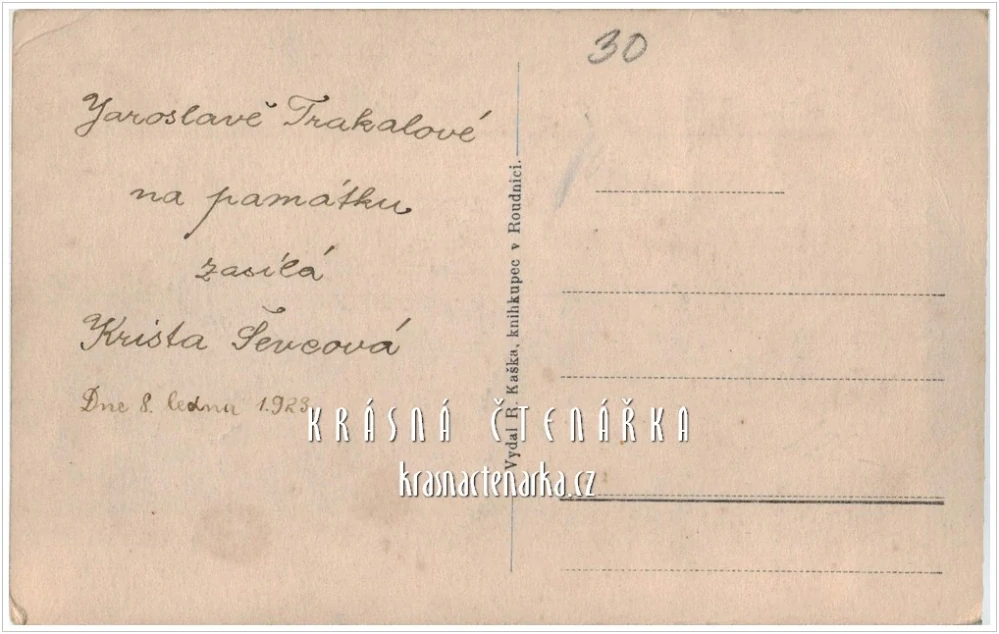 30
Jaroslavě Trakalové
na památku
zasílá
Krista Ševcová
Dne 8. ledna 1.923
Vydal R. Kaška, knihkupec v Roudnici.
KRÁSNÁ ČTENÁŘKA
krasnactenarka.cz